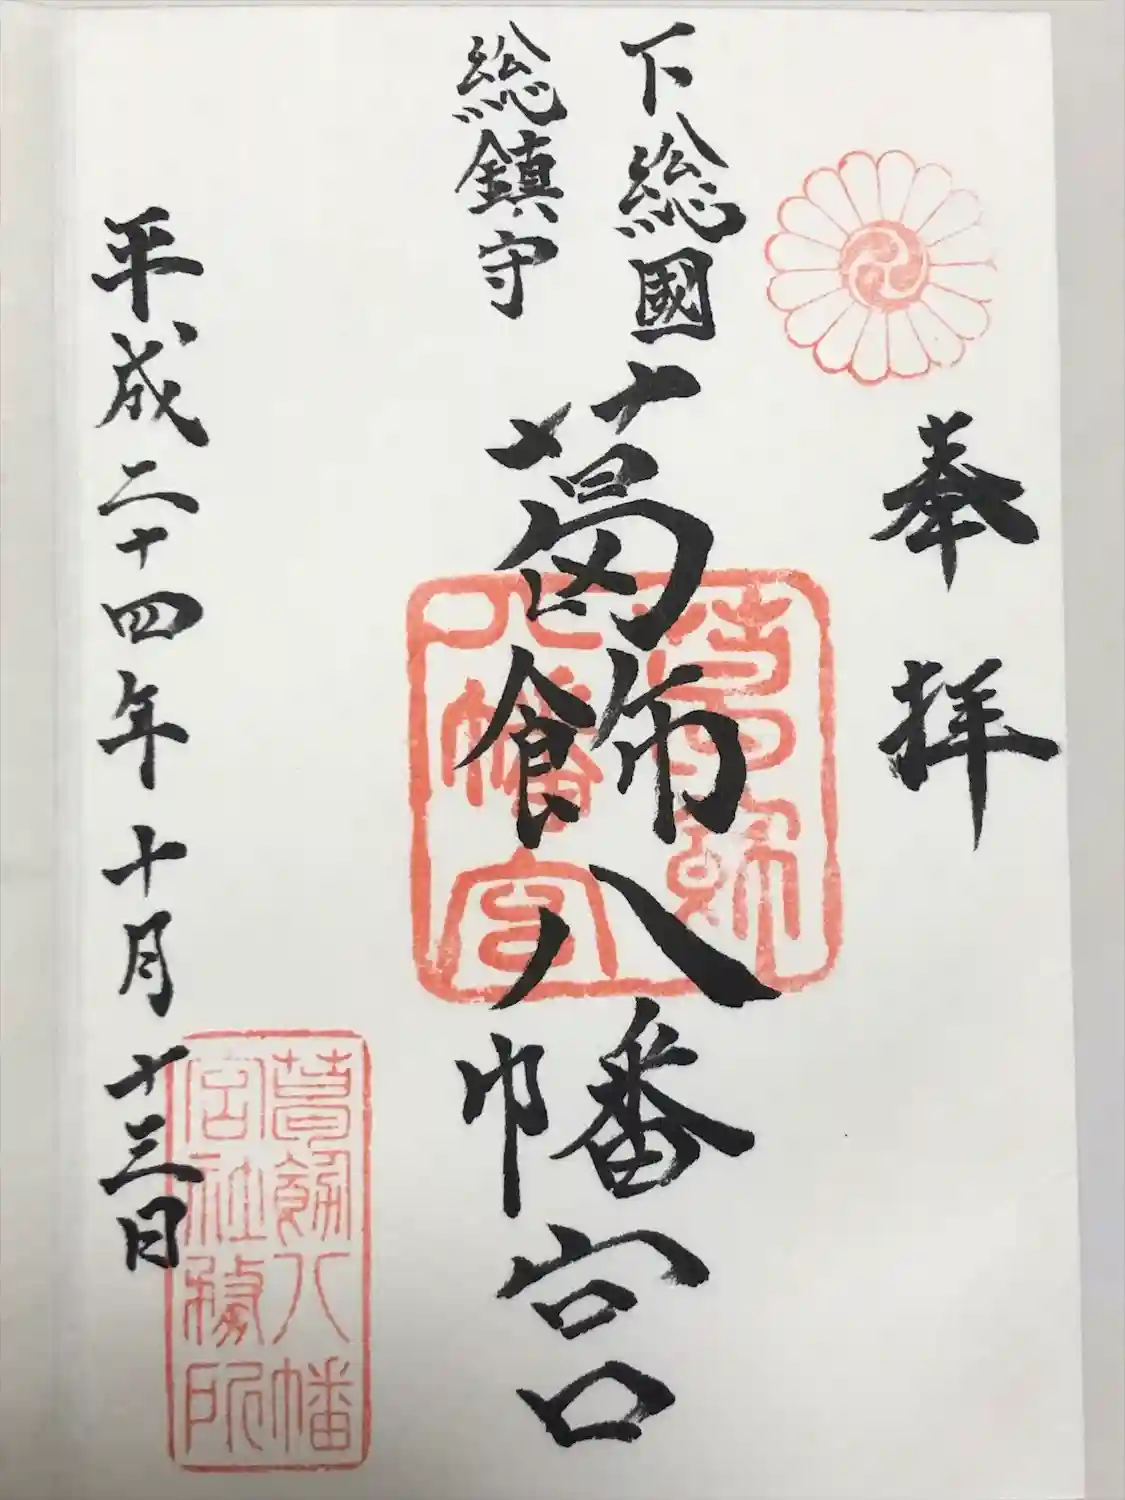 奉拝
下総國
総鎮守
葛飾八幡宮
平成二十四年十月十三日
葛飾
八幡
宮
葛飾八幡
宮社務所